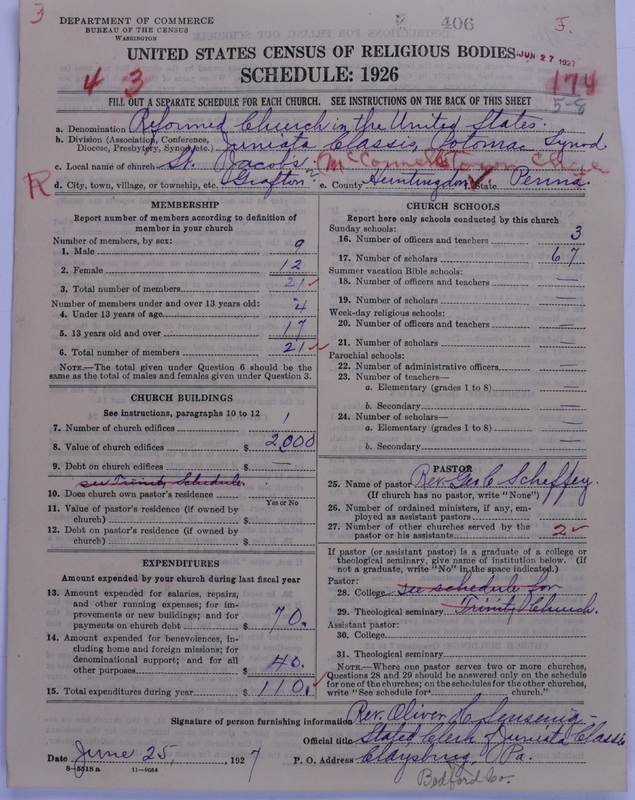 3
DEPARTMENT OF COMMERCE
BUREAU OF THE CENSUS
WASHINGTON
406
J.
UNITED STATES CENSUS OF RELIGIOUS BODIES
JUN 27 1927
SCHEDULE: 1926
4 3
174
5-8
FILL OUT A SEPARATE SCHEDULE FOR EACH CHURCH. SEE INSTRUCTIONS ON THE BACK OF THIS SHEET
a. Denomination Reformed Church in the United States.
b. Division (Association, Conference, Diocese, Presbytery, Synod, etc.) Juniata Classis, Potomac Synod
c. Local name of church St. Jacobs McConnellstown Charge
R
d. City, town, village, or township, etc. Grafton e. County Huntingdon State Penna.
MEMBERSHIP
Report number of members according to definition of
member in your church
Number of members, by sex:
1. Male 9
2. Female 12
3. Total number of members 21
Number of members under and over 13 years old:
4. Under 13 years of age 4
5. 13 years old and over 17
6. Total number of members 21
NOTE.—The total given under Question 6 should be
same as the total of males and females given under Question 3.
CHURCH BUILDINGS
See instructions, paragraphs 10 to 12
7. Number of church edifices 1
8. Value of church edifices $ 2,000
9. Debt on church edifices $ —
see Trinity Schedule.
10. Does church own pastor's residence
Yes or No
11. Value of pastor's residence (if owned by
church) $
12. Debt on pastor's residence (if owned by
church) $
EXPENDITURES
Amount expended by your church during last fiscal year
13. Amount expended for salaries, repairs,
and other running expenses; for im-
provements or new buildings; and for
payments on church debt $ 70.
14. Amount expended for benevolences, in-
cluding home and foreign missions; for
denominational support; and for all
other purposes $ 40.
15. Total expenditures during year $ 110.
CHURCH SCHOOLS
Report here only schools conducted by this church
Sunday schools:
16. Number of officers and teachers 3
17. Number of scholars 67
Summer vacation Bible schools:
18. Number of officers and teachers —
19. Number of scholars —
Week-day religious schools:
20. Number of officers and teachers —
21. Number of scholars —
Parochial schools:
22. Number of administrative officers —
23. Number of teachers—
a. Elementary (grades 1 to 8) —
b. Secondary —
24. Number of scholars—
a. Elementary (grades 1 to 8) —
b. Secondary —
PASTOR
25. Name of pastor Rev. Geo. C. Scheffey.
(If church has no pastor, write "None")
26. Number of ordained ministers, if any, em-
ployed as assistant pastors
27. Number of other churches served by the
pastor or his assistants 2
If pastor (or assistant pastor) is a graduate of a college or
theological seminary, give name of institution below. (If
not a graduate, write "No" in the space indicated.)
Pastor:
28. College see schedule for
29. Theological seminary Trinity Church.
Assistant pastor:
30. College
31. Theological seminary
NOTE.—Where one pastor serves two or more churches,
Questions 28 and 29 should be answered only on the schedule
for one of the churches; on the schedules for the other churches,
write "See schedule for church."
Signature of person furnishing information Rev. Oliver H. Sensenig
Official title Stated Clerk of Juniata Classis
Date June 25, 1927 P. O. Address Claysburg, Pa.
8—5518 a 11—9684
Bedford Co.